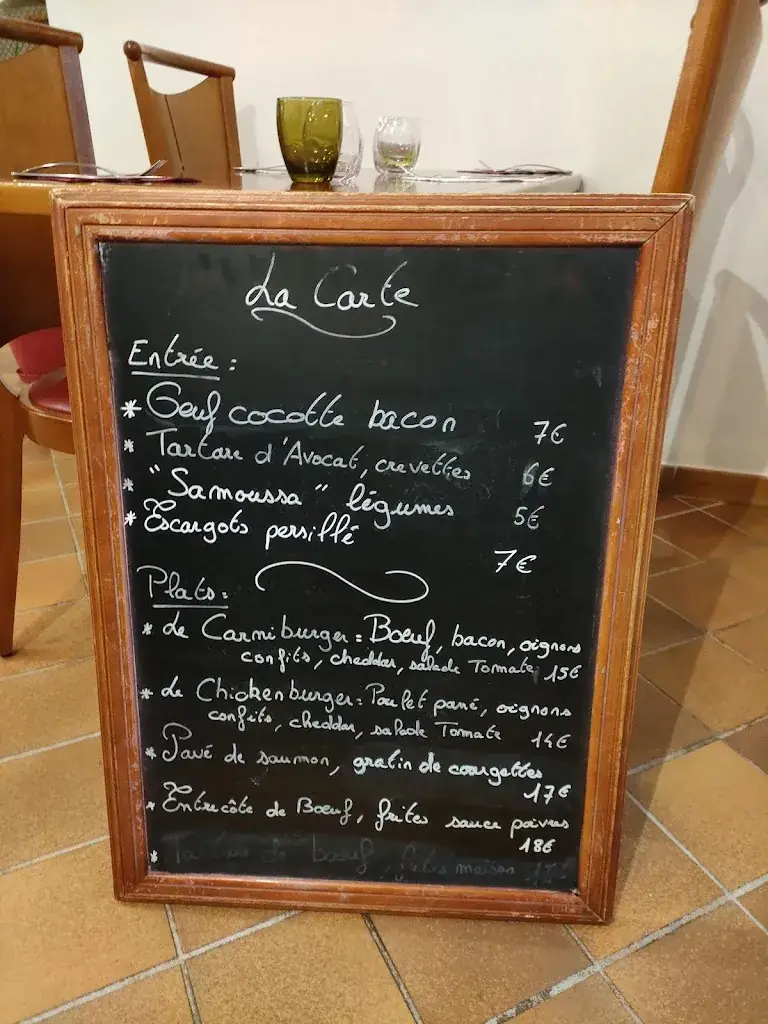 La Carte
Entrée :
* Oeuf cocotte bacon 7€
* Tartare d'Avocat, crevettes 6€
* "Samoussa" légumes 5€
* Escargots persillé 7€
Plats :
* Le Carniburger : Boeuf, bacon, oignons
confits, cheddar, salade Tomate 15€
* Le Chickenburger : Poulet pané, oignons
confits, cheddar, salade Tomate 14€
* Pavé de saumon, gratin de courgettes
17€
* Entrecôte de Boeuf, frites sauce poivre
18€
* de boeuf, frites maison